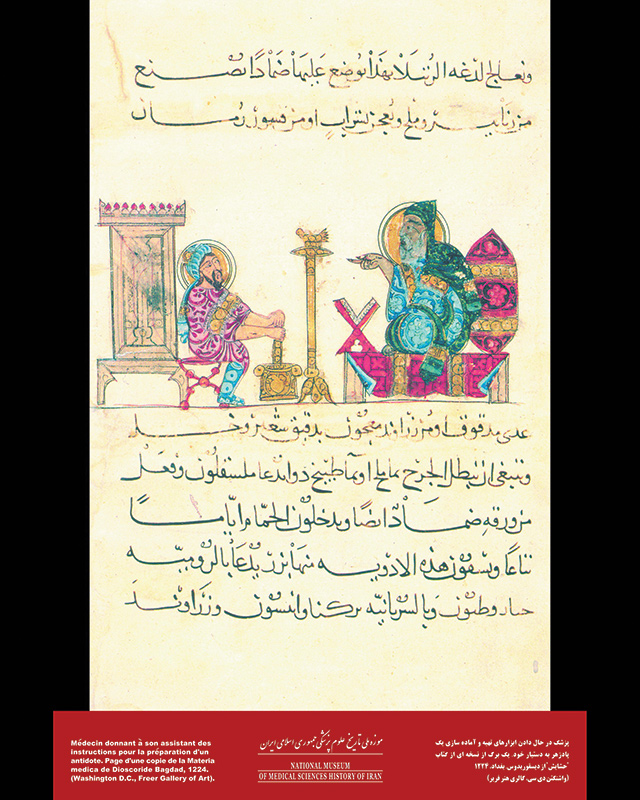 وتعالج لدغه الرتيلا بهذا يوضع عليها ضمادا يصنع
من رماد وملح ويعجن بشراب او من قشور رمان
مدقوق او من زراوند معجون بدقيق شعير وخل
وينبغي ان ينطل الجرح بما ملح او بما طبيخ دوا يدعا
من ورقه ضمادا ايضا ويدخلون الحمام اياما
تباعا ويسقون هذه الادويه منها بزر يدعا بالروميه
وبالسريانيه وانيسون وزراوند
Médecin donnant à son assistant des
instructions pour la préparation d'un
antidote. Page d'une copie de la Materia
medica de Dioscoride Bagdad, 1224.
(Washington D.C., Freer Gallery of Art).
موزه ملی تاریخ علوم پزشکی جمهوری اسلامی ایران
NATIONAL MUSEUM
OF MEDICAL SCIENCES HISTORY OF IRAN
پزشک در حال دادن ابزارهای تهیه و آماده سازی یک
پادزهر به دستیار خود. یک برگ از نسخه ای از کتاب
"حشایش" از دیسقوریدوس. بغداد، ۱۲۲۴
(واشنگتن دی سی، گالری هنر فریر)